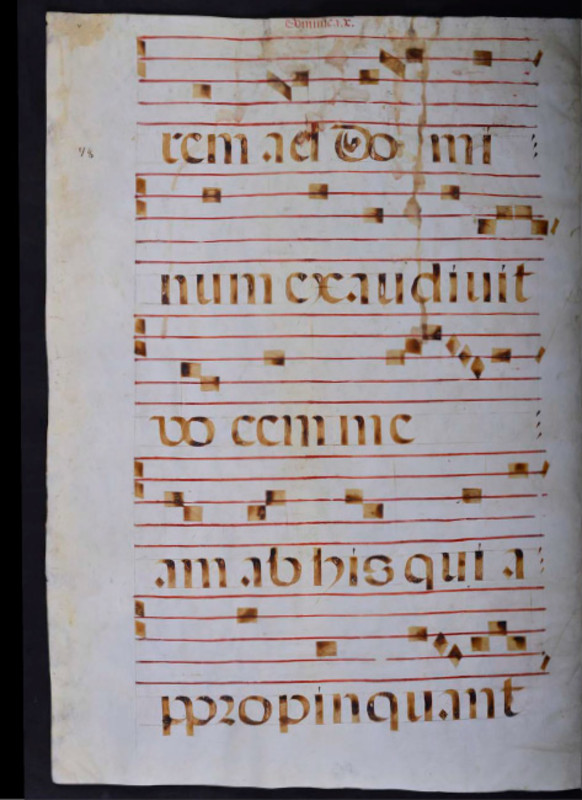 Dominic. i. x.
rem ad Do mi
num exaudiuit
vo cem me
am ab his qui a
ppropinquant